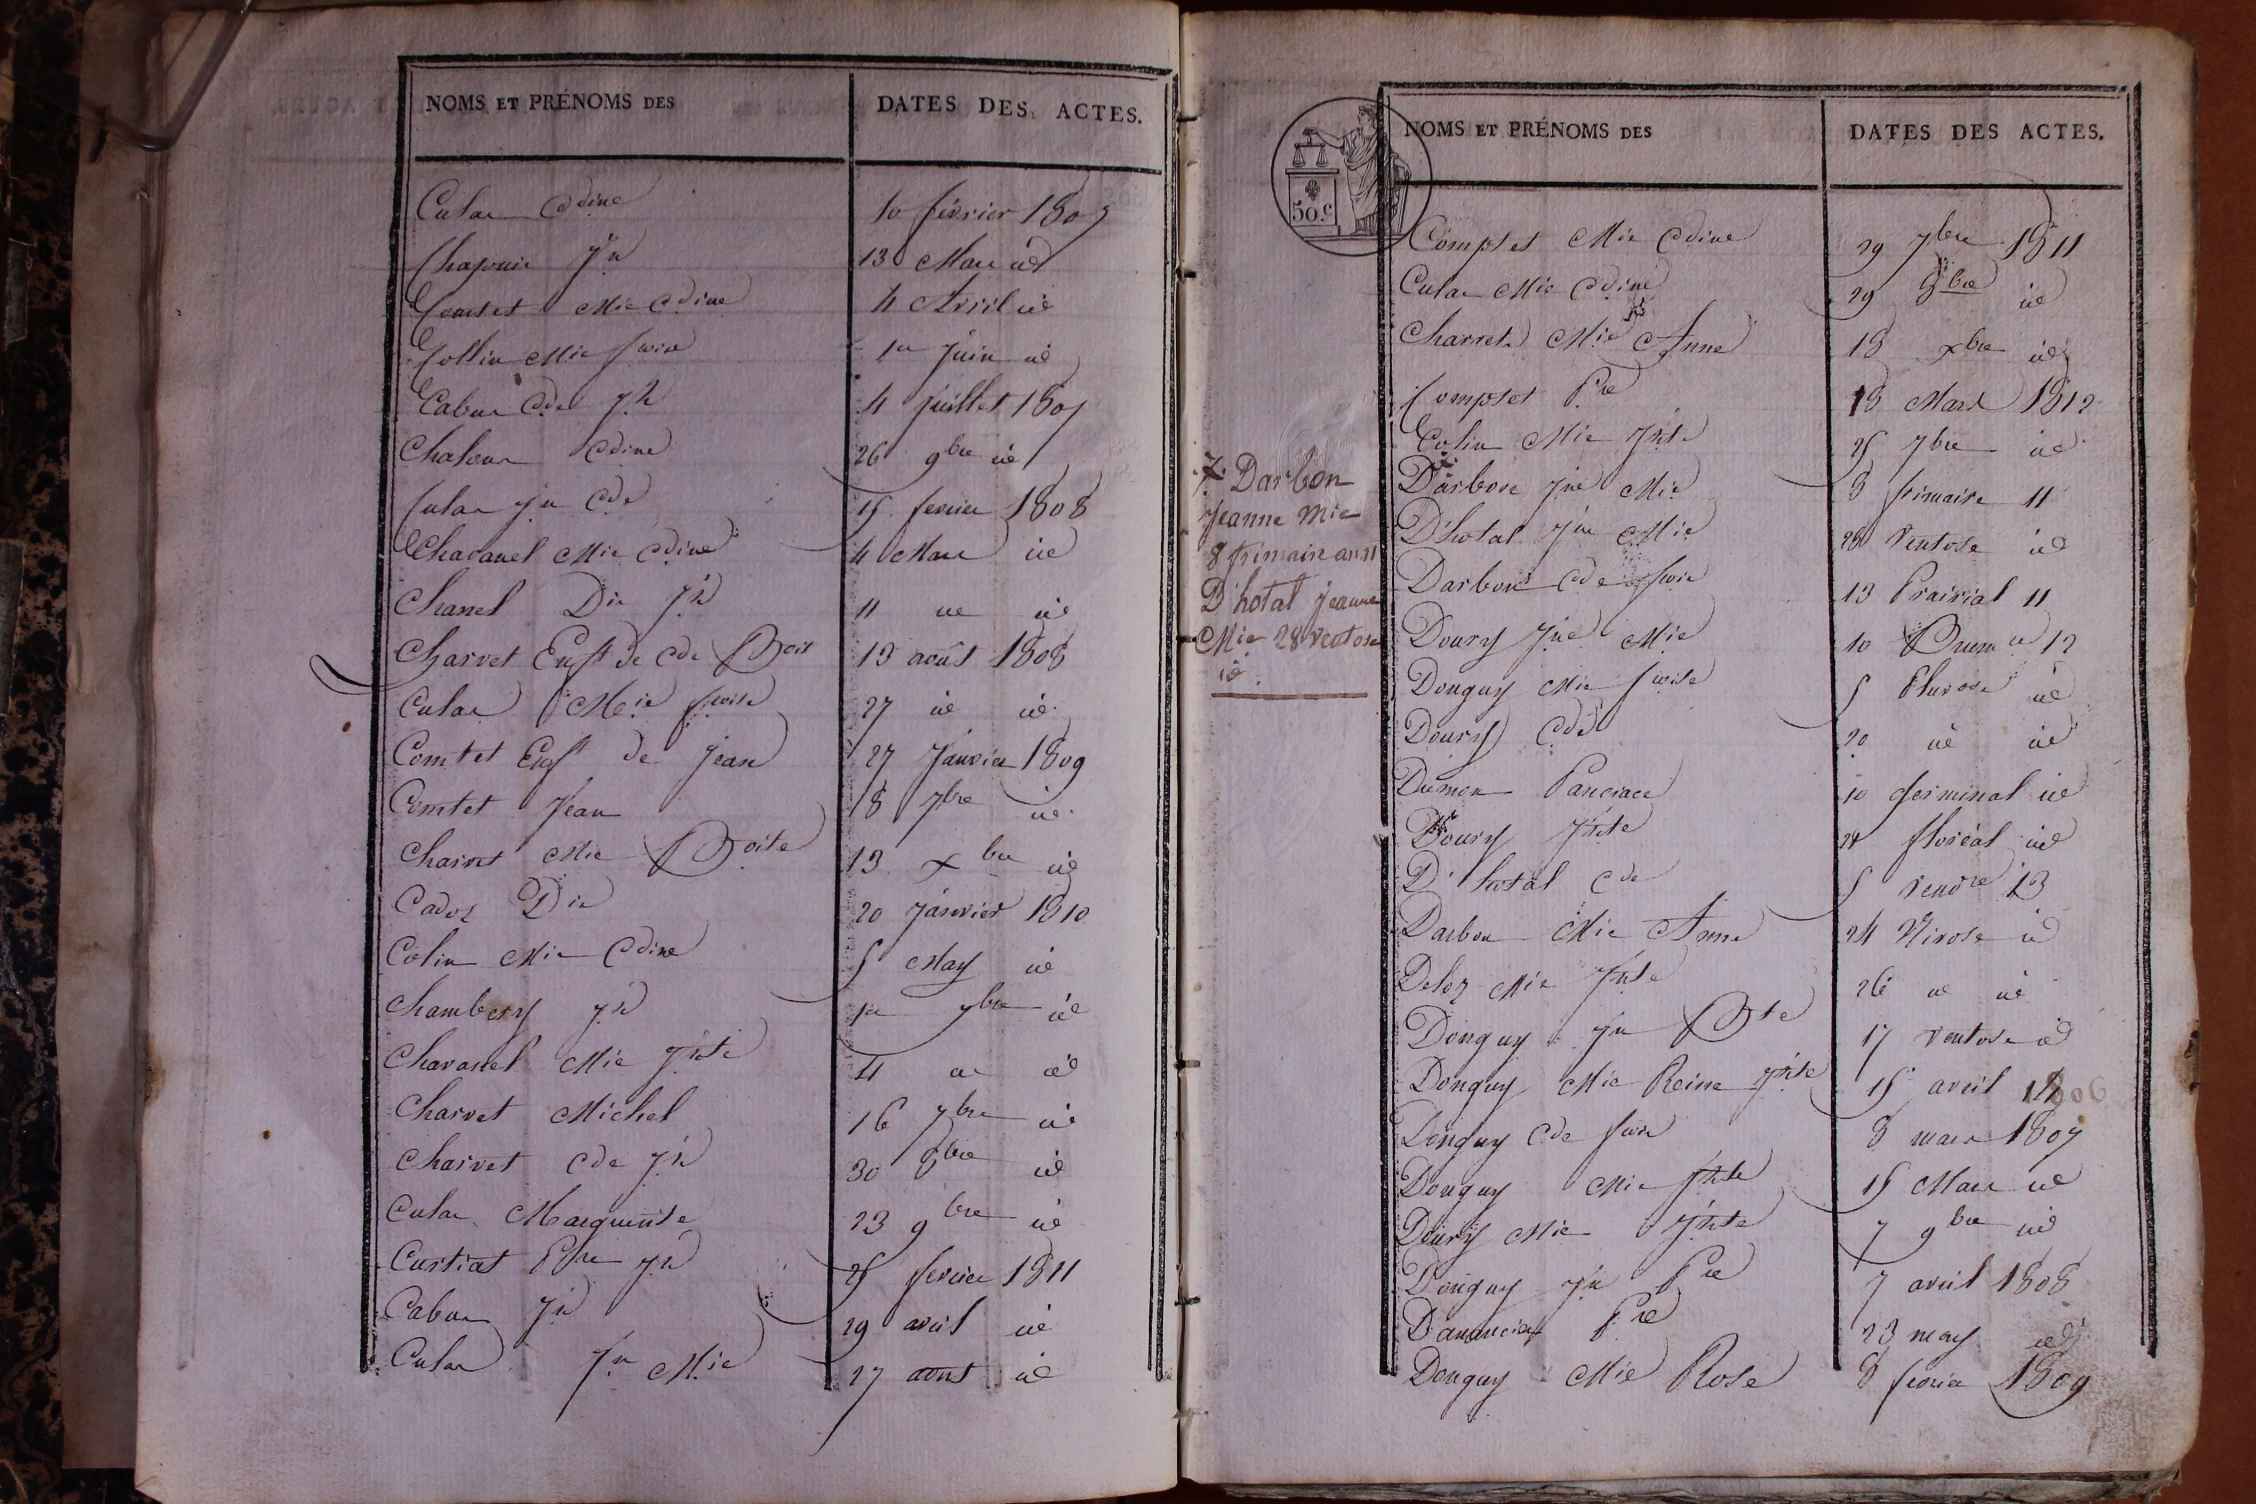 NOMS ET PRÉNOMS DES DATES DES ACTES.
Cular Cdine 10 février 1807
Jh 13 Mars id
Comtet Mie Cdine 4 Avril id
Collin Mie foise 1er Juin id
Cabur Cde Jh 4 Juillet 1807
Cdine 26 9bre id
Cular Jn Cde 15 fevrier 1808
Chavanel Mie Cdine 4 Mars id
Chanel Die Jh 11 id id
Charvet Enft de Cde Boit 13 août 1808
Cular Mie foise 27 id id
Comtet Enft de Jean 27 Janvier 1809
Comtet Jean 18 7bre id
Charvet Mie Boite 13 xbre id
Cadoz Die 20 Janvier 1810
Colin Mie Cdine 5 May id
Chambery Jh 1er 7bre id
Chavanel Mie Jhte 4 id id
Charvet Michel 16 7bre id
Charvet Cde Jh 30 8bre id
Cular Marguerite 23 9bre id
Curtiat Jh 25 fevrier 1811
Cabur Jh 29 avril id
Cular Jn Mie 27 aout id
NOMS ET PRÉNOMS DES DATES DES ACTES.
50.c
Comptet Mie Cdine 29 7bre 1811
Cular Mie Cdine 29 8bre id
Charvet Mie Anne 18 xbre id
Comptet Pre 18 Mars 1812
Colin Mie Jhte 25 7bre id
Darbon Jne Mie 8 frimaire 11
D'hotal Jne Mie 28 Ventose id
Darbon Cde foise 13 Prairial 11
Doury Jne Mie 10 Brumre 12
Donguy Mie foise 5 Pluvose id
Doury Cde 20 id id
Dumon Pancrace 10 Germinal id
Doury Jhte 24 floréal id
D'hotal Cde 5 Vendre 13
Darbon Mie Anne 24 Nivose id
Deloz Mie Jhte 26 id id
Donguy Jn Bte 17 Ventose id
Donguy Mie Reine Jhte 15 avril 1806
Donguy Cde foise 8 mars 1807
Donguy Mie Jhte 15 Mars id
Doury Mie Jhte 7 9bre id
Donguy Jn Pre 7 avril 1808
Pre 23 may id
Donguy Mie Rose 8 fevrier 1809
7. Darbon
Jeanne Mie
8 frimaire an 11
D'hotal Jeanne
Mie 28 Ventose
id.